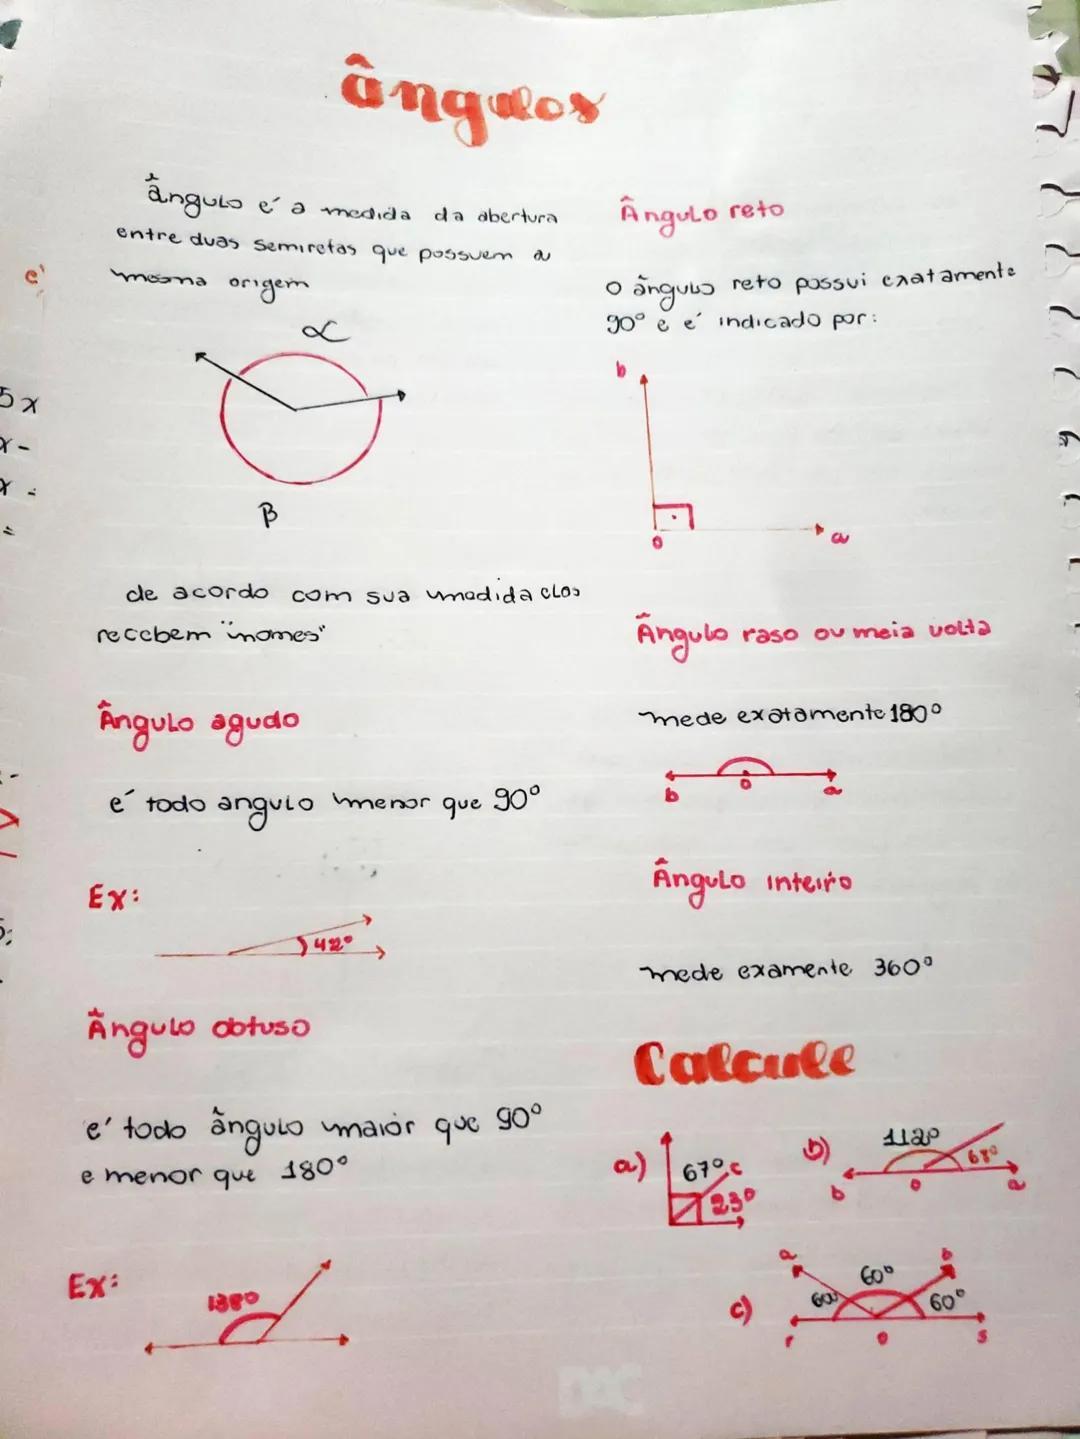 ângulos
ângulo é a medida da abertura
entre duas semiretas que possuem a
mesma origem
α
β
de acordo com sua medida elas
recebem "nomes"
Ângulo agudo
é todo angulo menor que 90°
Ex:
42°
Ângulo obtuso
é todo ângulo maior que 90°
e menor que 180°
Ex:
138°
Ângulo reto
o ângulo reto possui exatamente
90° e é indicado por:
b
o
a
Ângulo raso ou meia volta
mede exatamente 180°
b
o
a
Ângulo inteiro
mede examente 360°
Calcule
a)
67°
c
23°
b)
112°
68°
b
o
a
c)
a
b
60°
60°
60°
r
o
s
é
5x
x-
x =
=
DAC